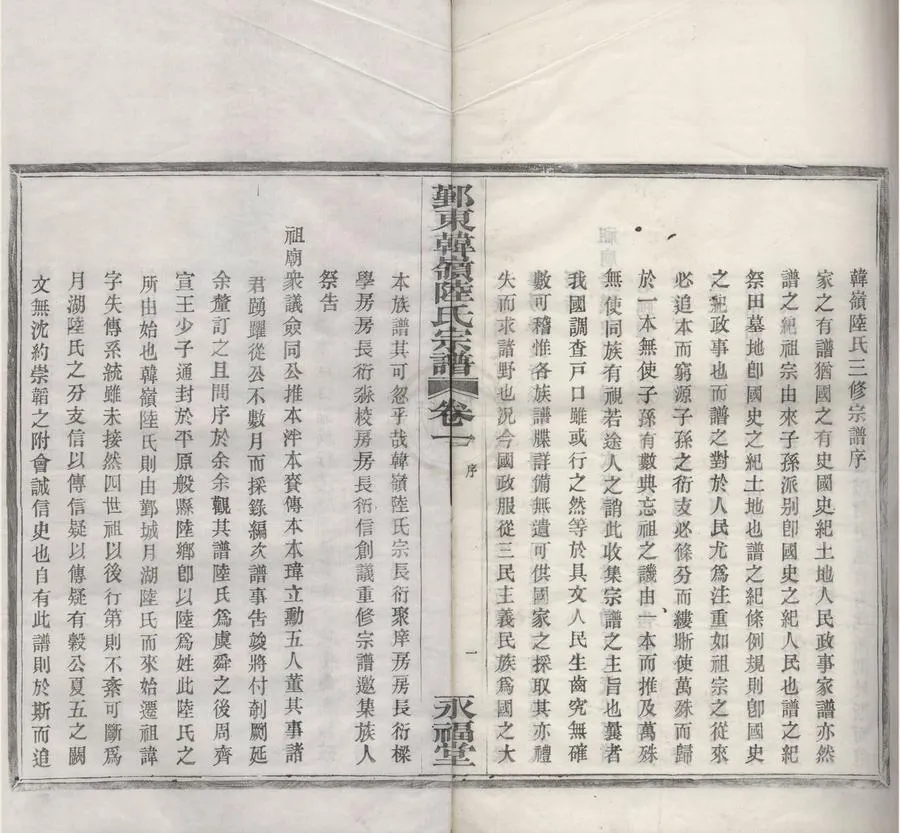 韓嶺陸氏三修宗譜序
家之有譜猶國之有史國史紀土地人民政事家譜亦然
譜之紀祖宗由來子孫派别卽國史之紀人民也譜之紀
祭田墓地卽國史之紀土地也譜之紀條例規則卽國史
之紀政事也而譜之對於人民尤爲注重如祖宗之從來
必追本而窮源子孫之衍支必條分而縷晣使萬殊而歸
於一本無使子孫有數典忘祖之譏由一本而推及萬殊
無使同族有視若途人之誚此收集宗譜之主旨也曩者
我國調查戸口雖或行之然等於具文人民生齒究無確
數可稽惟各族譜牒詳備無遺可供國家之採取其亦禮
失而求諸野也況今國政服從三民主義民族爲國之大
鄞東韓嶺陸氏宗譜
卷一
序
一
永福堂
本族譜其可忽乎哉韓嶺陸氏宗長衍聚庠房房長衍樑
學房房長衍淼校房房長衍信創議重修宗譜邀集族人
祭告
祖廟衆議僉同公推本泮本賚傳本本瑋立勳五人董其事諸
君踴躍從公不數月而採錄編次譜事告竣將付剞劂延
余釐訂之且問序於余余觀其譜陸氏爲虞舜之後周齊
宣王少子通封於平原般縣陸鄉卽以陸爲姓此陸氏之
所由始也韓嶺陸氏則由鄞城月湖陸氏而來始遷祖諱
字失傳系統雖未接然四世祖以後行第則不紊可斷爲
月湖陸氏之分支信以傳信疑以傳疑有穀公夏五之闕
文無沈約崇韜之附會誠信史也自有此譜則於斯而追